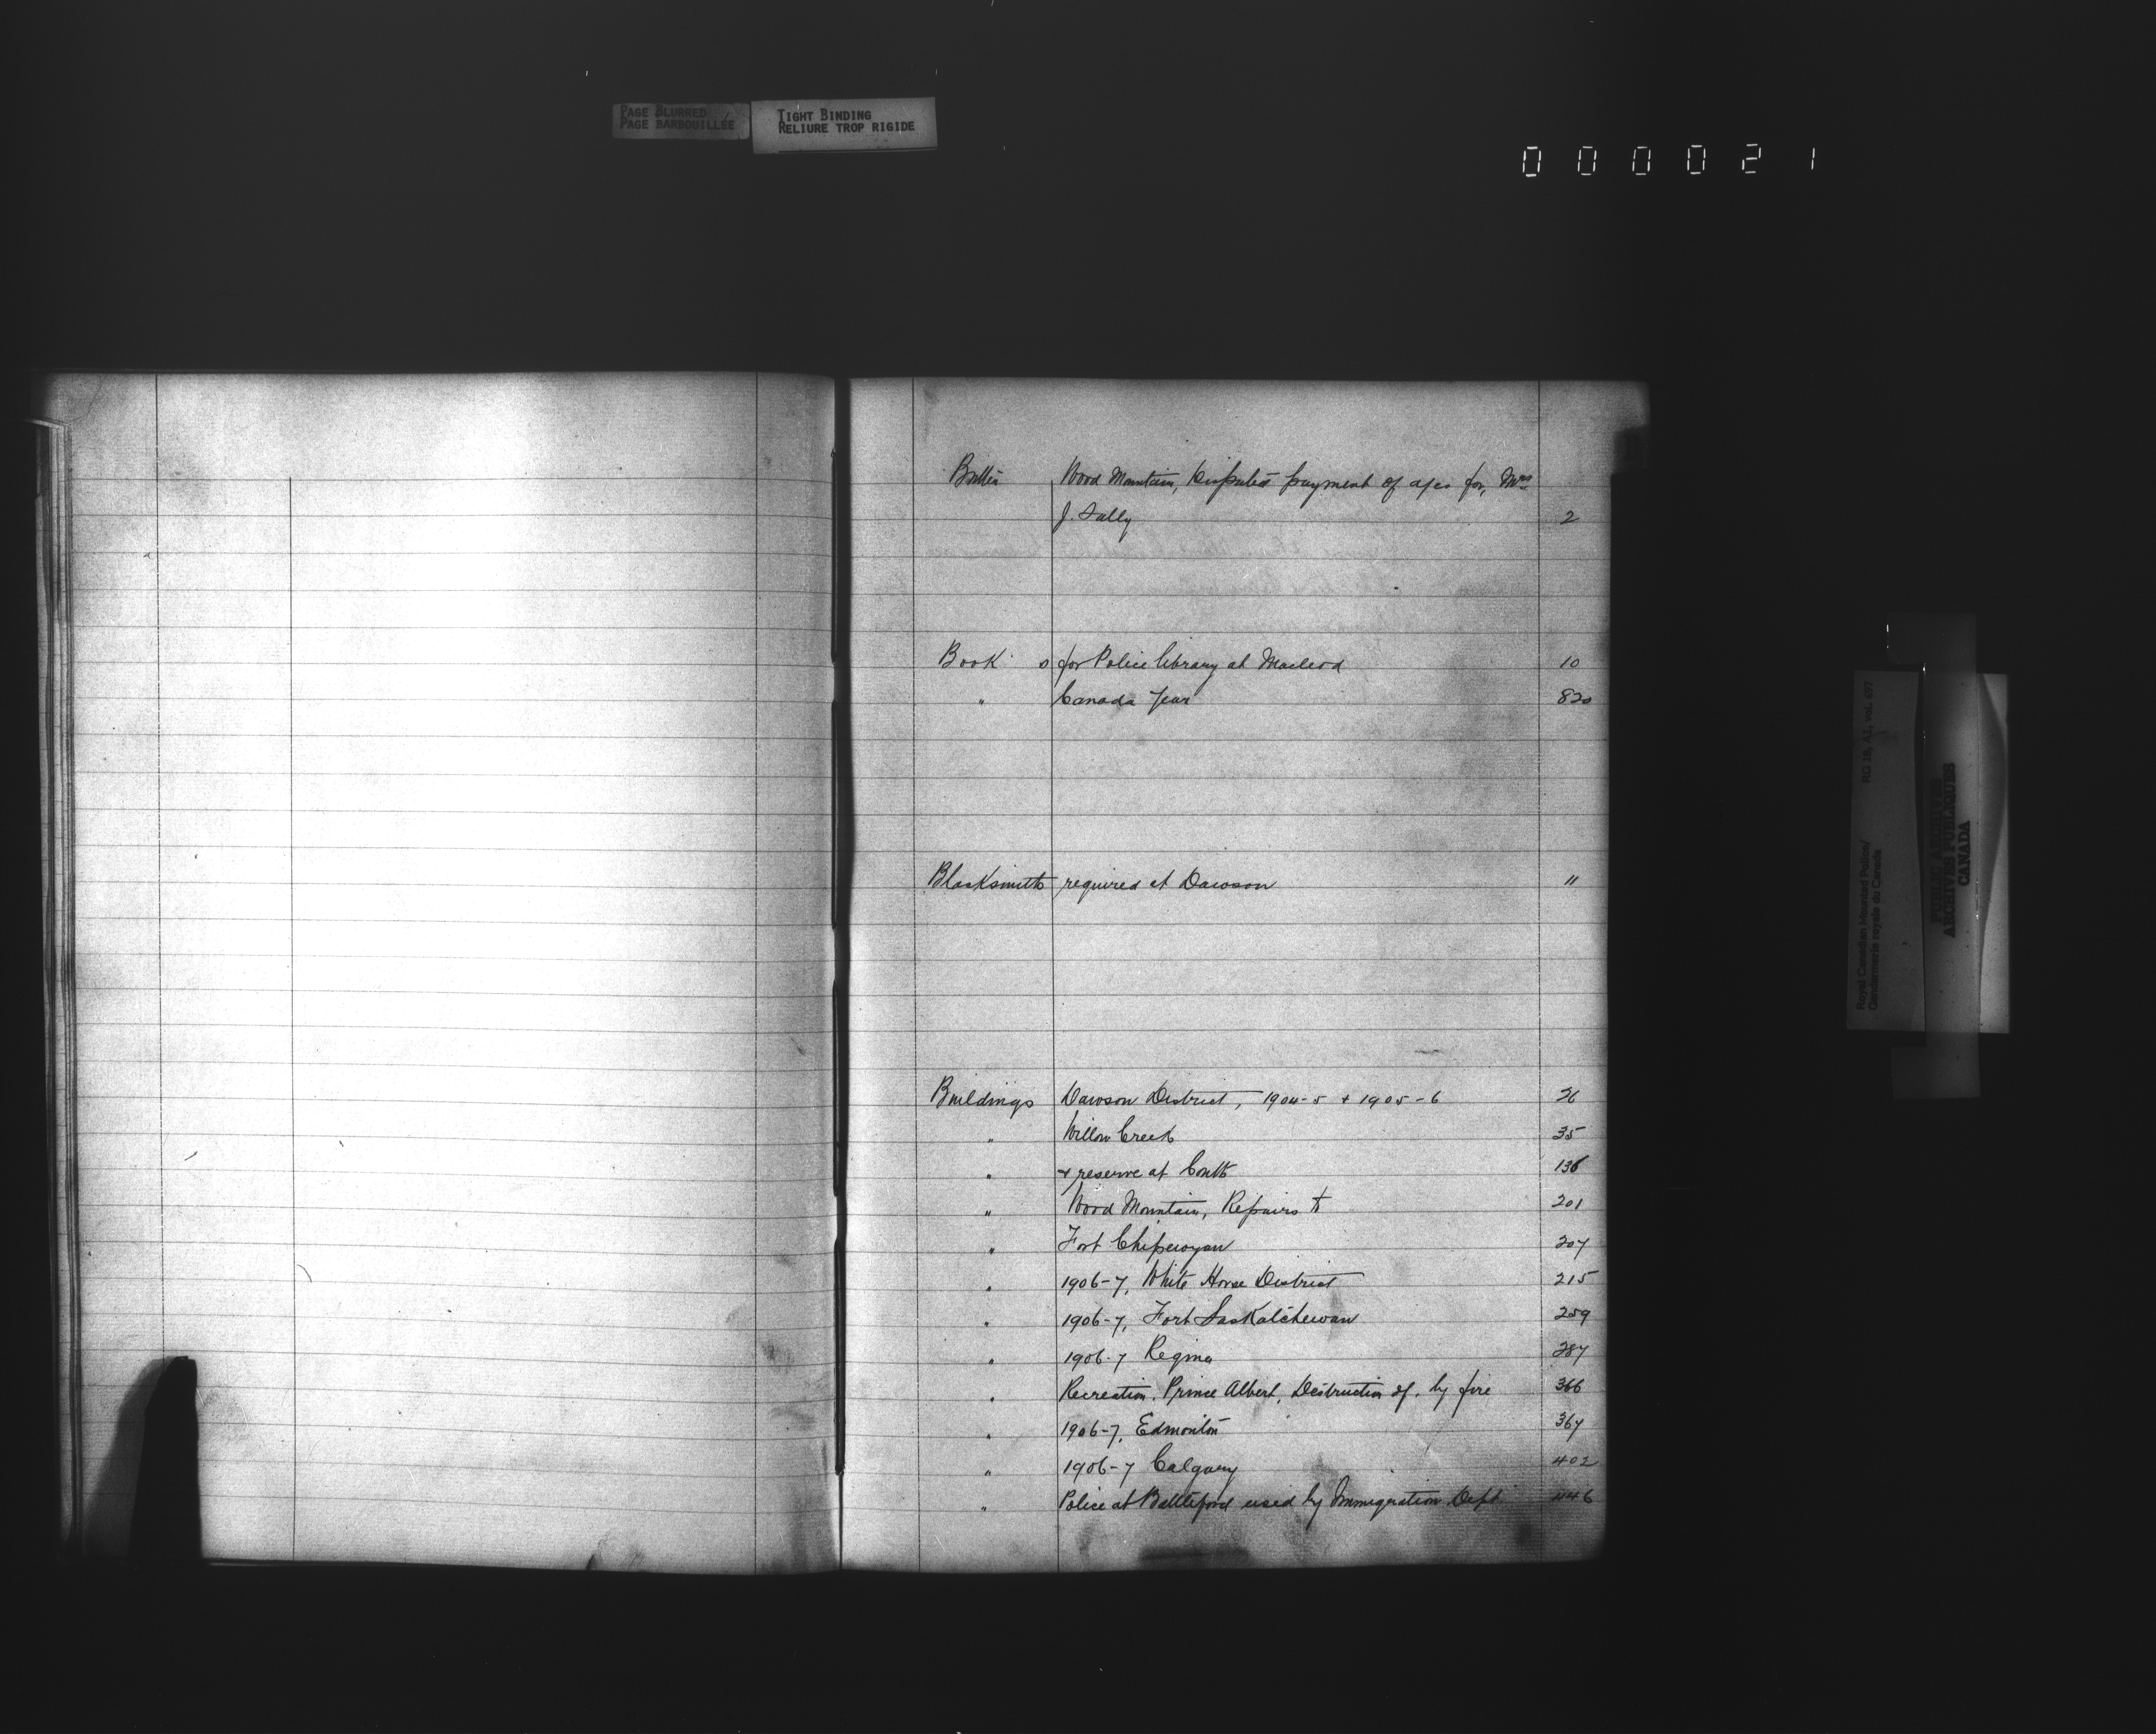 PAGE BLURRED
PAGE BARBOUILLÉE
TIGHT BINDING
RELIURE TROP RIGIDE
000021
Butter Wood Mountain, Disputed payment of a/cs for, Mrs
J. Tally 2
Book s for Police library at Macleod 10
" Canada Year 820
Blacksmith required at Dawson 11
Buildings Dawson District, 1904-5 + 1905-6 26
" Willow Creek 35
" + reserve at Coutts 136
" Wood Mountain, Repairs to 201
" Fort Chipewyan 207
" 1906-7, White Horse District 215
" 1906-7, Fort Saskatchewan 259
" 1906-7 Regina 287
" Recreation, Prince Albert, Destruction of, by fire 366
" 1906-7, Edmonton 367
" 1906-7 Calgary 402
" Police at Battleford used by Immigration Dept. 446
Royal Canadian Mounted Police/
Gendarmerie royale du Canada
RG 18, A1, vol. 697
PUBLIC ARCHIVES
ARCHIVES PUBLIQUES
CANADA